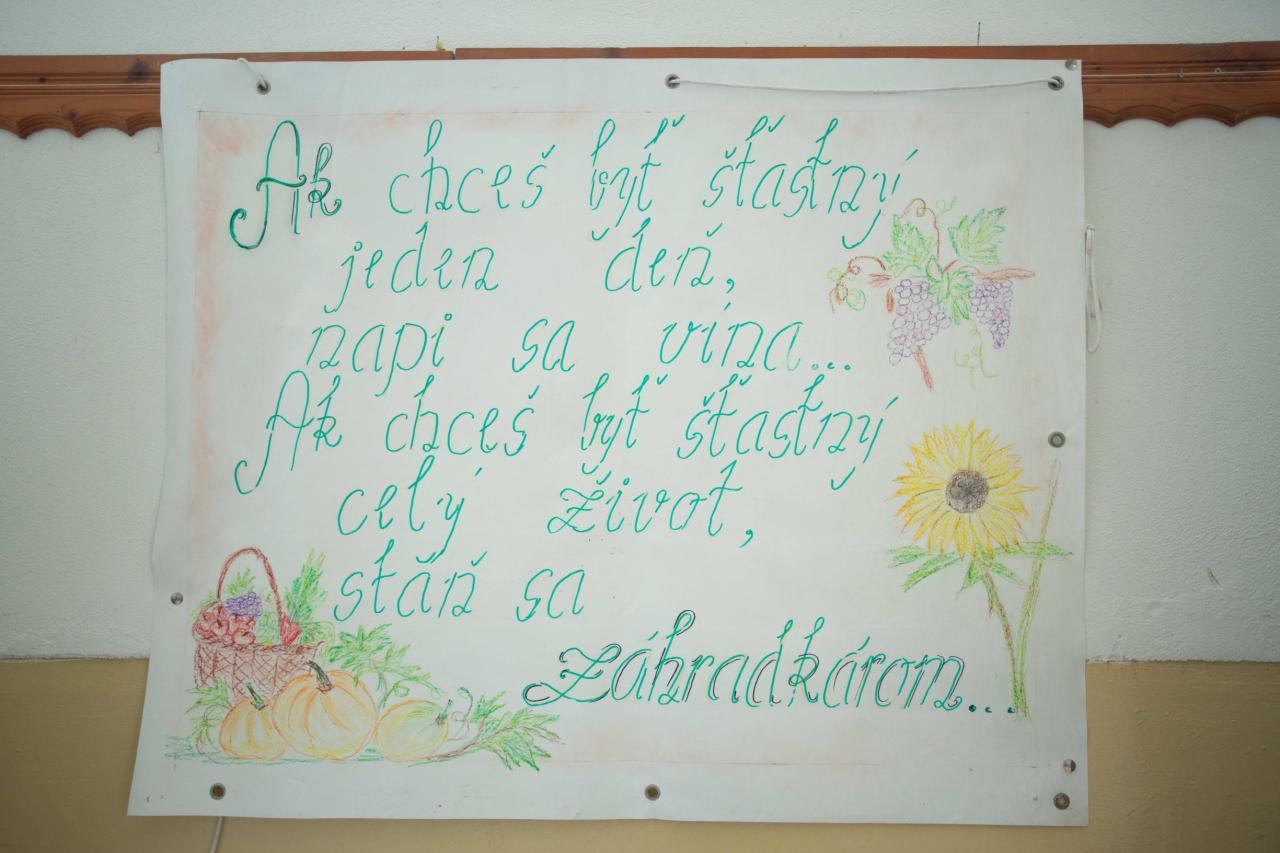 Ak chceš byť šťastný
jeden deň,
napi sa vína...
Ak chceš byť šťastný
celý život,
staň sa
záhradkárom...